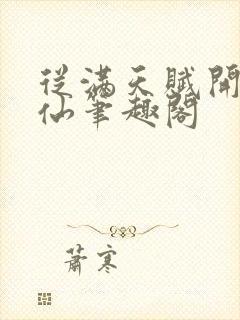 從滿天賦開
仙筆趣閣
蕭寒